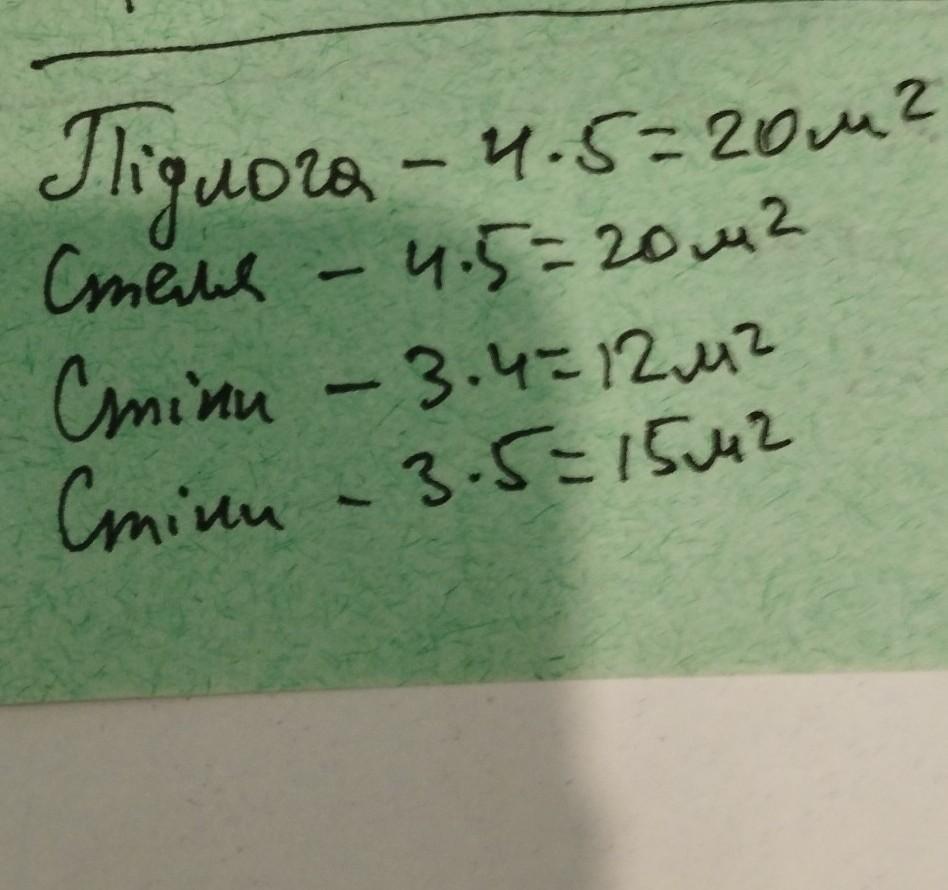 Підлога - 4.5=20м²
Стеля - 4.5=20м²
Стіни - 3.4=12м²
Стіни - 3.5=15м²